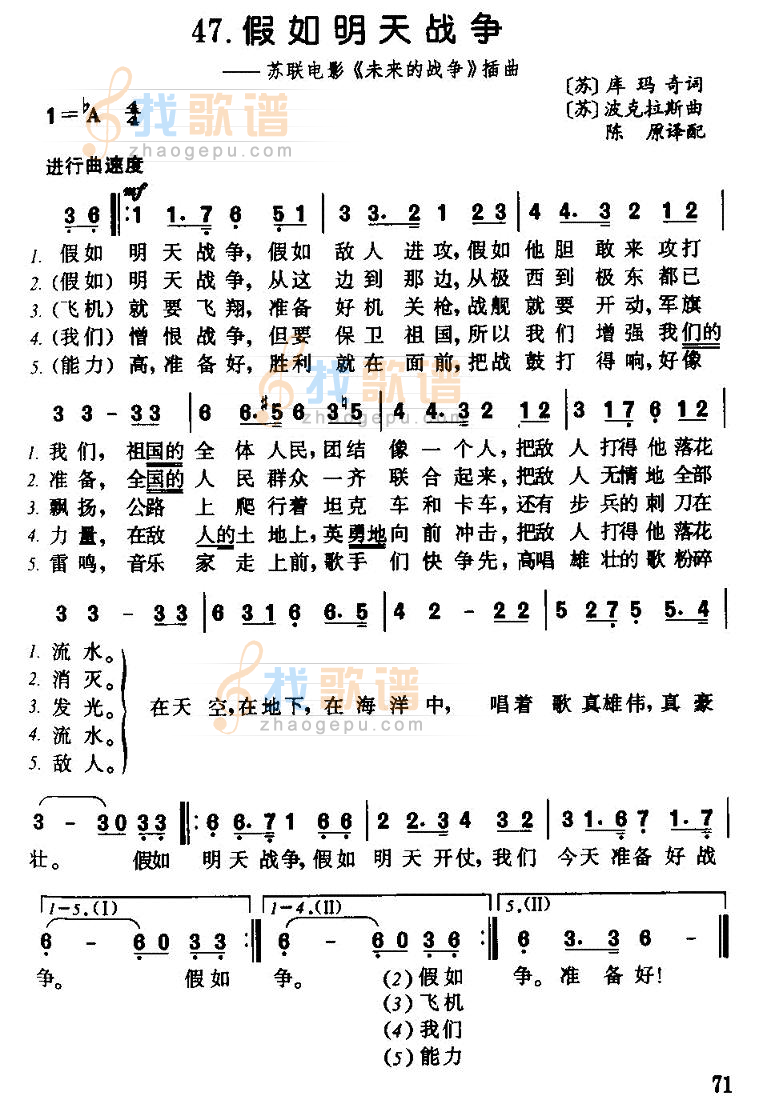 47. 假如明天战争
—— 苏联电影《未来的战争》插曲
〔苏〕库 玛 奇词
〔苏〕波克拉斯曲
陈 原译配
1=♭A 4/4
找歌谱
zhaogepu.com
进行曲速度
mf
3 6 ‖: 1 1. 7 6 5 1 | 3 3. 2 1 2 3 | 4 4. 3 2 1 2
1. 假如 明天战争,假如 敌人进攻,假如他胆敢来攻打
2. (假如) 明天战争,从这 边到那边,从极西到极东都已
3. (飞机) 就要飞翔,准备 好机关枪,战舰就要开动,军旗
4. (我们) 憎恨战争,但要 保卫祖国,所以我们增强我们的
5. (能力) 高,准备好,胜利 就在面前,把战鼓打得响,好像
找歌谱
zhaogepu.com
3 3 - 3 3 | 6 6. ♯5 6 5 | 3 3. ♮2 3 | 4 4. 3 2 1 2 | 3 1 7 6 1 2
1. 我们, 祖国的 全体人民,团结 像一个人,把敌人打得他落花
2. 准备, 全国的 人民群众一齐 联合起来,把敌人无情地全部
3. 飘扬, 公路 上爬行着坦克 车和卡车,还有步兵的刺刀在
4. 力量, 在敌 人的土地上,英勇地向前冲击,把敌人打得他落花
5. 雷鸣, 音乐 家走上前,歌手 们快争先,高唱雄壮的歌粉碎
3 3 - 3 3 | 6 3 1 6 6. 5 | 4 2 - 2 2 | 5 2 7 5 5. 4
1. 流水。
2. 消灭。
3. 发光。 在天空,在地下,在海洋中, 唱着歌真雄伟,真豪
4. 流水。
5. 敌人。
找歌谱
zhaogepu.com
3 - 3 0 3 3 ‖: 6 6. 7 1 6 6 | 2 2. 3 4 3 2 | 3 1. 6 7 1. 7
壮。 假如 明天战争,假如明天开仗,我们今天准备好战
1-5. (I) 1-4. (II) 5. (II)
6 - 6 0 3 3 :‖ 6 - 6 0 3 6 :‖ 6 3. 3 6 - ‖
争。 假如 争。 (2)假如 争。准备好!
(3)飞机
(4)我们
(5)能力
71